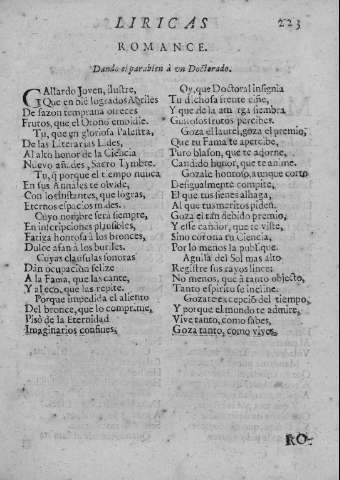 LIRICAS 223
ROMANCE.
Dando el parabien à vn Doctorado.
GAllardo Joven, ilustre,
Que en
De sazon temprana ofreces
Frutos, que el Otoño embidie.
Tu, que en gloriosa Palestra,
De las Literarias Lides,
Al alto honor de la Ciencia
Nuevo añades, Sacro Tymbre.
Tu, q̃ porque el tiempo nunca
En sus Annales te olvide,
Con los instantes, que logras,
Eternos espacios mides.
Cuyo nombre serà siempre,
En inscripciones plausibles,
Fatiga honrosa à los bronces,
Dulce afan à los buriles.
Cuyas clausulas sonoras
Dàn ocupacion felize
A la Fama, que las cante,
Y al eco, que las repite.
Porque impedida el aliento
Del bronce, que lo comprime,
Pisò de la Eternidad
Imaginarios confines.
Oy, que Doctoral insignia
Tu dichosa frente ciñe,
Y que de la amarga siembra
Gustosos frutos percibes.
Goza el laurel, goza el premio,
Que tu Fama te apercibe,
Puro blason, que te adorne,
Candido honor, que te anime.
Gozale honroso, aunque corto
Desigualmente compite,
El que tus sienes alhaga,
Al que tus meritos piden.
Goza el tan debido premio,
Y esse candor, que te viste,
Sino corona tu Ciencia,
Por lo menos la publique.
Aguila del Sol mas alto
Registre sus rayos lince:
No menos, que à tanto objecto,
Tanto espiritu se incline.
Gozate excepcion del tiempo,
Y porque el mundo te admire,
Vive tanto, como sabes,
Goza tanto, como vives.
RO-